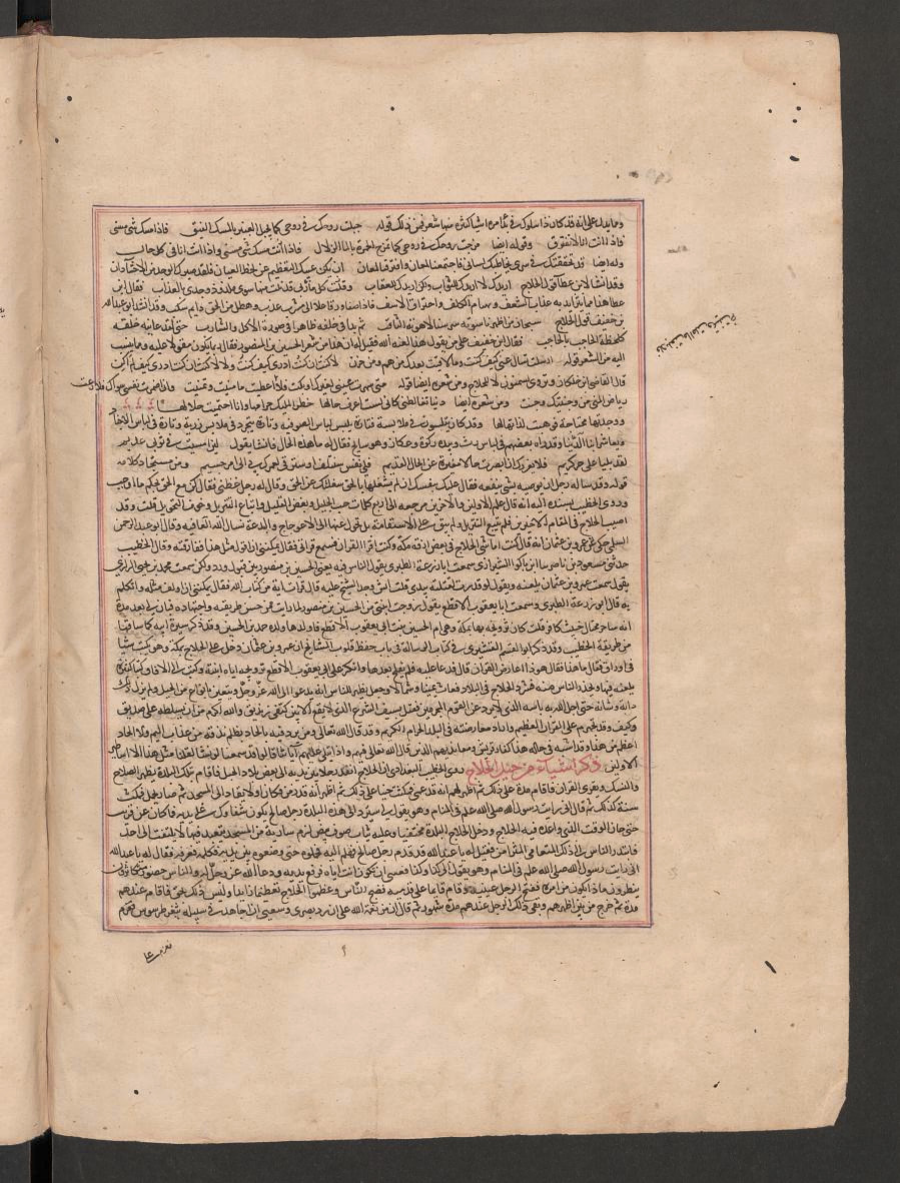 ومما يدل على انه قد كان ذا سلوك في بدء امره اشياء كثيرة منها شعره فمن ذلك قوله جبلت روحك في روحي كما يجبل العنبر بالمسك الفنيق فاذا مسك شي مسني
فاذا انت انا لا نفترق وقوله ايضا مزجت روحك في روحي كما تمزج الخمرة بالماء الزلال فاذا مسك شي مسني واذا انت انا في كل حال
وله ايضا قد تحققتك في سري فخاطبك لساني فاجتمعنا لمعان وافترقنا لمعان ان يكن غيبك التعظيم عن لحظ العيان فلقد صيرك الوجد من الاحشاء دان
وقد انشد لابن عطا قول الحلاج اريدك لا اريدك للثواب ولكني اريدك للعقاب وكل مآربي قد نلت منها سوى ملذوذ وجدي بالعذاب فقال ابن
عطا هذا مما يتزايد به عذاب الشغف وهيام الكلف واحتراق الاسف فاذا صفا ووفا علا الى مشرب عذب وهطل من الحق دايم سكب وقد انشد لابي عبد الله
بن خفيف قول الحلاج سبحان من اظهر ناسوته سر سنا لاهوته الثاقب ثم بدا في خلقه ظاهرا في صورة الاكل والشارب حتى لقد عاينه خلقه
كلحظة الحاجب بالحاجب فقال ابن خفيف على من يقول بهذا لعنة الله فقيل له ان هذا من شعر الحسين بن المنصور فقال ربما يكون مقولا عليه ومما ينسب
اليه من الشعر قوله ارسلت تسال عني كيف كنت وما لاقيت بعدك من هم ومن حزن لا كنت ان كنت ادري كيف كنت ولا لا كنت ان كنت ادري كيف لم اكن
قال القاضي ابن خلكان ويروى لسمنون لا للحلاج ومن شعره ايضا قوله متى سهرت عيني لغيرك او بكت فلا اعطيت ما منيت وتمنت وان اضمرت نفسي سواك فلا رعت
رياض المنى من وجنتيك وجنت ومن شعره ايضا دنيا تغالطني كاني لست اعرف حالها حظر المليك حرامها وانا احتميت حلالها
ووجدتها محتاجة فوهبت لذتها لها وقد كان يتلون في ملابسه فتارة يلبس لباس الصوفية وتارة يتجرد في ملابس زرية وتارة في لباس الاجناد
ويعاشر ابناء الدنيا وقد رآه بعضهم في لباس رث وبيده ركوة وعكاز وهو سايح فقال له ما هذه الحال فانشا يقول لئن امسيت في ثوبي عديم
لقد بليا على حر كريم فلا يغررك ان ابصرت حالا مغيرة عن الحال القديم فلي نفس ستتلف او سترقى لعمرك بي الى امر جسيم ومن مستجاد كلامه
قوله وقد ساله رجل ان يوصيه بشي ينفعه فقال عليك بنفسك ان لم تشغلها بالحق شغلتك عن الحق وقال له رجل عظني فقال كن مع الحق بحكم ما اوجب
وروى الخطيب بسنده اليه انه قال علم الاولين والآخرين مرجعه الى اربع كلمات حب الجليل وبغض القليل واتباع التنزيل وخوف التحويل قلت وقد
اصيب الحلاج في المقام الاخير فلم يتبع التنزيل ولم يبق على الاستقامة بل تحول عنها الى الاعوجاج والبدعة نسال الله العافية وقال ابو عبد الرحمن
السلمي حكي عن عمرو بن عثمان انه قال كنت اماشي الحلاج في بعض ازقة مكة وكنت اقرا القران فسمع قراتي فقال يمكنني ان اقول مثل هذا ففارقته وقال الخطيب
حدثني مسعود بن ناصر انبا ابن باكوا الشيرازي سمعت ابا زرعة الطبري يقول الناس فيه يعني الحسين بن منصور بين قبول ورد ولكن سمعت محمد بن يحيى الرازي
يقول سمعت عمرو بن عثمان يلعنه ويقول لو قدرت لقتلته بيدي قلت ايش وجد الشيخ عليه قال قرات اية من كتاب الله فقال يمكنني ان اولف مثله واتكلم
به قال ابو زرعة الطبري وسمعت ابا يعقوب الاقطع يقول زوجت ابنتي من الحسين بن منصور لما رايت من حسن طريقته واجتهاده فبان لي بعد مدة
انه ساحر محتال خبيث كافر قلت كان تزوجه بها بمكة وهي ام الحسين بنت ابي يعقوب الاقطع فاولدها ولده احمد بن الحسين وقد ذكر سيرة ابيه كما ساقها
من طريقه الخطيب وقد ذكر ابو القسم القشيري في كتاب الرسالة في باب حفظ قلوب المشايخ ان عمرو بن عثمان دخل على الحلاج بمكة وهو يكتب شيا
في اوراق فقال ما هذا فقال هو ذا اعارض القران قال فدعا عليه فلم يفلح بعدها وانكر على ابي يعقوب الاقطع تزويجه اياه ابنته وكتب الى الافاق كتبا كثيرة
يلعنه فيها ويحذر الناس منه فشرد الحلاج في البلاد فعاث يمينا وشمالا وجعل يظهر للناس انه يدعوا الى الله عز وجل ويستعين بانواع من الحيل ولم يزل ذلك
دابه وشانه حتى احل الله به باسه الذي لا يرد عن القوم المجرمين فقتل بسيف الشرع الذي لا يقع الا بين كتفي زنديق والله اكرم من ان يسلطه على صديق
وكيف وقد تهجم على القران العظيم واراد معارضته في البلد الحرام الكريم وقد قال الله تعالى ومن يرد فيه بالحاد بظلم نذقه من عذاب اليم ولا الحاد
اعظم من هذا وقد اشبه في حاله هذا كفار قريش ومعانديهم الذين قال الله تعالى فيهم واذا تتلى عليهم آياتنا قالوا قد سمعنا لو نشا لقلنا مثل هذا ان هذا الا اساطير
الاولين ذكر اشياء من حيل الحلاج روى الخطيب البغدادي ان الحلاج انفذ رجلا بين يديه الى بعض بلاد الجبل فاقام بتلك البلدة يظهر الصلاح
والنسك ويقري القران فاقام مدة على ذلك ثم اظهر لهم انه قد عمي فمكث حينا على ذلك ثم اظهر انه قد زمن فكان اولا يقاد الى المسجد ثم صار يحمل فمكث
سنة كذلك ثم قال اني رايت رسول الله صلى الله عليه في المنام وهو يقول لي سيرد الى هذه البلدة رجل صالح يكون شفاوك على يديه فما كان عن قريب
حتى حان الوقت الذي واعده فيه الحلاج ودخل الحلاج البلدة مختفيا وعليه ثياب صوف بيض فلزم سارية من المسجد يتعبد فيها لا يلتفت الى احد
فابتدر الناس الى ذلك المتعامي المتزامن فقيل له يا عبد الله قد قدم رجل صالح فهلم اليه فحملوه حتى وضعوه بين يديه فكلمه فعرفه فقال له يا عبد الله
اني رايت رسول الله صلى الله عليه في المنام وهو يقول لي كذا وكذا فعسى ان تكون انت اياه فرفع يديه ودعا الله عز وجل له والناس حضور متكاثرون
ينظرون ماذا يكون من امره ففتح الرجل عينيه وقام قايما على قدميه فضج الناس وعظموا الحلاج تعظيما زايدا وليس ذلك بحق فاقام عندهم
مدة ثم خرج من بين اظهرهم وبقي ذلك الرجل عندهم مدة شهور ثم قال ان من نعمة الله علي ان رد بصري وسعيي ان اجاهد في سبيله بثغر طرسوس فعزم